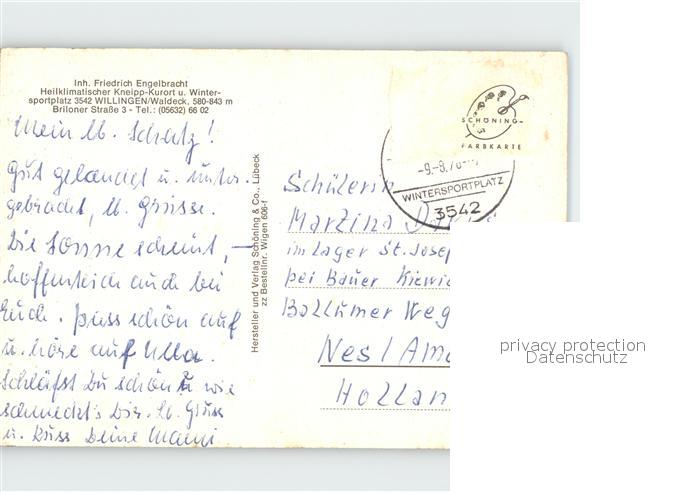 Inh. Friedrich Engelbracht
Heilklimatischer Kneipp-Kurort u. Winter-
sportplatz 3542 WILLINGEN/Waldeck, 580-843 m
Briloner Straße 3 - Tel.: (05632) 66 02
Mein lb. Schatz!
Gut gelandet u. unter-
gebracht, lb. Grüsse.
Die Sonne scheint, –
hoffentlich auch bei
Euch. Pass schön auf
u. höre auf Ulla.
Schläfst Du schön u. wie
schmeckt's Dir. Lb. Gruss
u. Kuss Deine Mami
Hersteller und Verlag Schöning & Co., Lübeck
zz Bestellnr. Wigen 606-f
SCHÖNING-
FARBKARTE
-9.-8.76
WINTERSPORTPLATZ
3542
Schülerin
Martina
im Lager St. Josep
bei Bauer Kiewie
Ballumer Weg
Nes/Ame
Hollan
privacy protection
Datenschutz